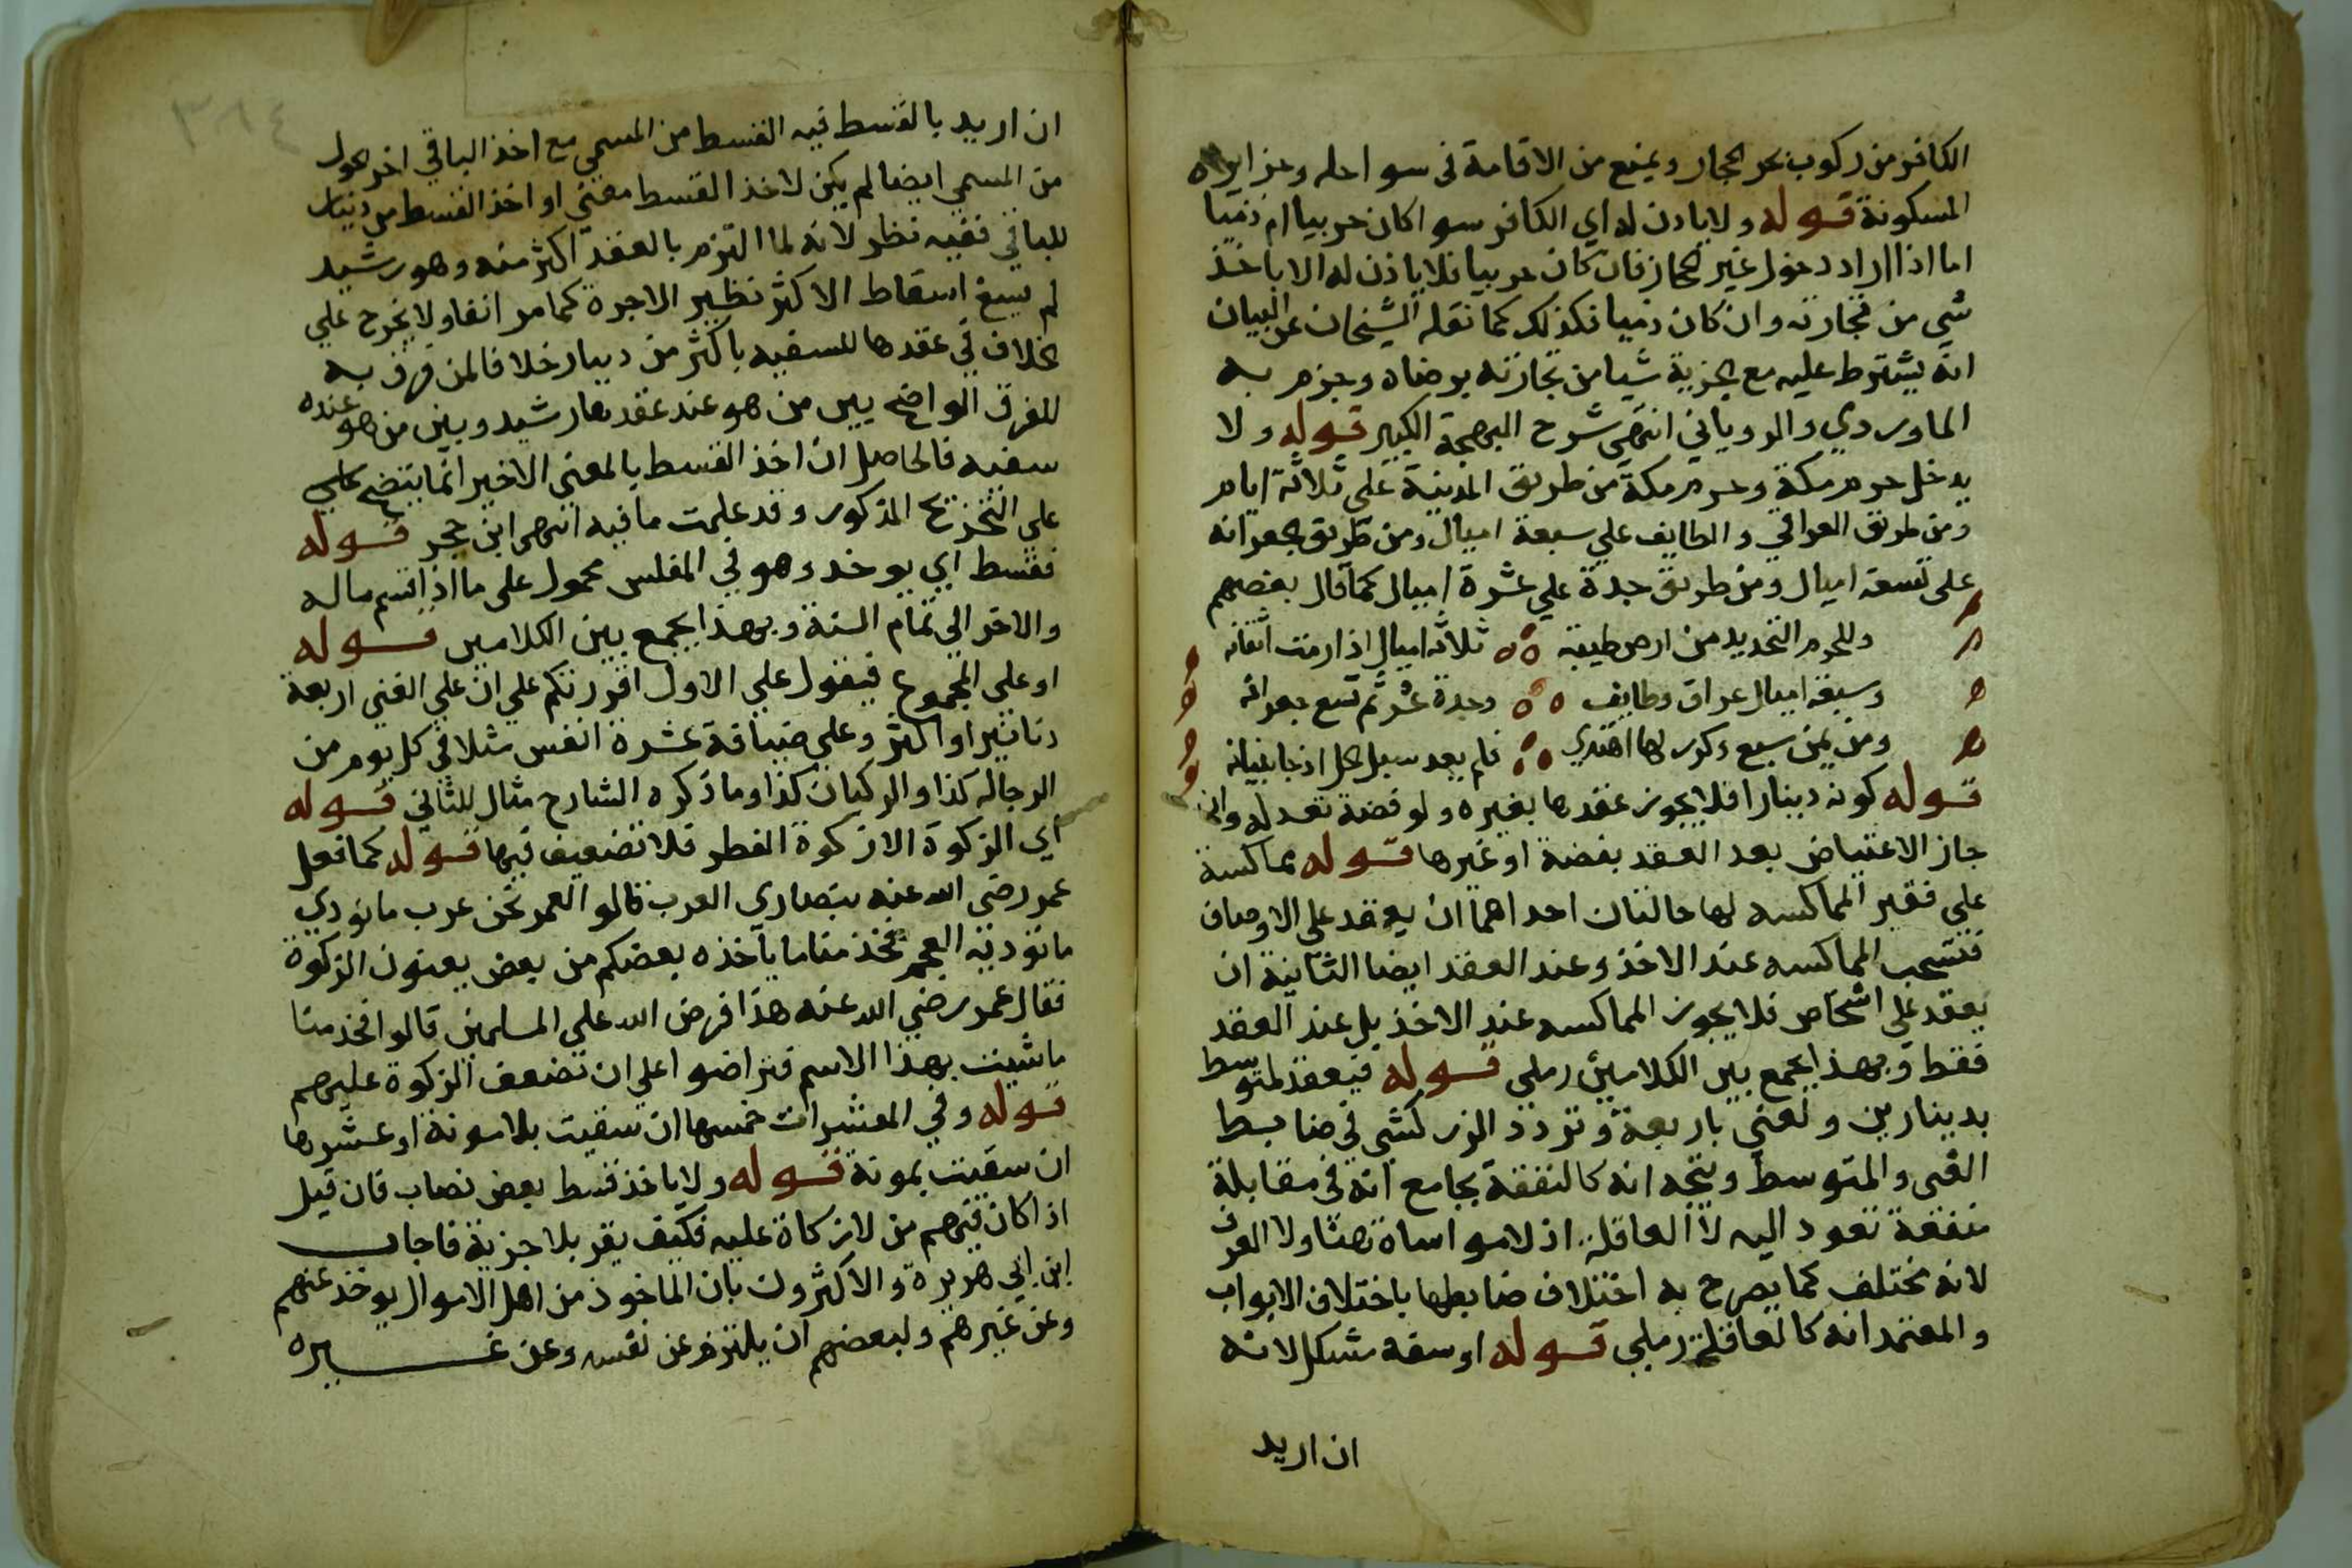 الكافر من ركوب بحر الحجاز ويمنع من الاقامة في سواحله وجزايره
المسكونة قوله ولا يادن له اي الكافر سوا كان حربيا ام ذميا
اما اذا اراد دخول غير الحجاز فان كان حربيا فلا ياذن له الا باخذ
شي من تجارته وان كان ذميا فكذلك كما نقله الشيخان عن البيان
انه يشترط عليه مع الجزية شيا من تجارته برضاه وجزم به
الماوردي والروياني انتهى شرح البهجة الكبير قوله ولا
يدخل حرم مكة وحرم مكة من طريق المدينة على ثلاثة ايام
ومن طريق العراقي والطايف علي سبعة اميال ومن طريق الجعرانه
على تسعة اميال ومن طريق جدة علي عشرة اميال كما قال بعضهم
وللحرم التحديد من ارض طيبة ثلاثة اميال اذا رمت اتقانه
وسبعة اميال عراق وطايف وجدة عشر ثم تسع جعرانه
ومن يمن سبع وكرر لها اهتدي فلم يعد سيل الحل اذ جا بنيانه
قوله كونه دينارا فلا يجوز عقدها بغيره ولو فضة تعدله وان
جاز الاعتياض بعد العقد بفضة او غيرها قوله بماكسة
علي فقير المماكسه لها حالتان احداهما ان يعقد على الاوصاف
فتستحب المماكسه عند الاخذ وعند العقد ايضا الثانية ان
يعقد علي اشخاص فلا يجوز المماكسه عند الاخذ بل عند العقد
فقط وبهذا يجمع بين الكلامين رملي قوله فيعقد لمتوسط
بدينارين ولغني باربعة وتردد الزركشي في ضابط
الغني والمتوسط ويتجه انه كالنفقة بجامع انه في مقابلة
منفعة تعود اليه لا العاقلة اذ لا مواساة هنا ولا العرف
لانه مختلف كما يصرح به اختلاف ضابطها باختلاف الابواب
والمعتمد انه كالعاقلة رملي قوله او سفه مشكل لانه
ان اريد
٣٨٤
ان اريد بالقسط فيه القسط من المسمي مع اخذ الباقي اخر الحول
من المسمي ايضا لم يكن لاخذ القسط معني او اخذ القسط من دينار
للباقي ففيه نظر لانه لما التزم بالعقد اكثر منه وهو رشيد
لم يسغ اسقاط الاكثر نظير الاجرة كما مر انفا ولا يخرج علي
الخلاف في عقدها للسفيه باكثر من دينار خلافا لمن فرق به
للفرق الواضح بين من هو عند عقدها رشيد وبين من هو عنده
سفيه فالحاصل ان اخذ القسط بالمعنى الاخير انما يتضح علي
على التخريج المذكور وقد علمت ما فيه انتهى ابن حجر قوله
فقسط اي يوخد وهو في المفلس محمول على ما اذا قسم ماله
والاخر الي تمام السنة وبهذا يجمع بين الكلامين قوله
او علي المجموع فيقول علي الاول اقررتكم علي ان علي الغني اربعة
دنانير او اكثر وعلي ضيافة عشرة انفس مثلا في كل يوم من
الرجاله كذا والركبان كذا وما ذكره الشارح مثال للثاني قوله
اي الزكوة الا زكوة الفطر فلا تضعيف فيها قوله كما فعل
عمر رضي الله عنه بنصاري العرب قالوا لعمر نحن عرب ما نودي
ما توديه العجم فخذ منا ما ياخذه بعضكم من بعض يعنون الزكوة
فقال عمر رضي الله عنه هذا فرض الله على المسلمين قالوا فخذ منا
ما شيت بهذا الاسم فتراضوا علي ان تضعف الزكوة عليهم
قوله وفي المعشرات خمسها ان سقيت بلا مونة او عشرها
ان سقيت بمونة قوله ولا ياخذ قسط بعض نصاب فان قيل
اذا كان فيهم من لا زكاة عليه فكيف يقر بلا جزية فاجاب
ابن ابي هريرة والاكثرون بان الماخوذ من اهل الاموال يوخذ عنهم
وعن غيرهم ولبعضهم ان يلتزم عن نفسه وعن غيره